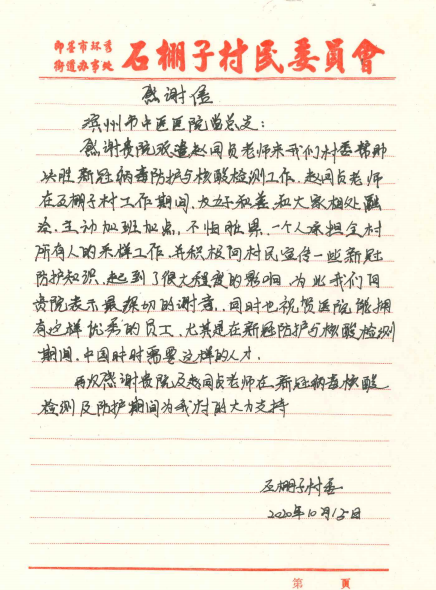 即墨市环秀
街道办事处 石棚子村民委員會
感谢信
滨州市中医医院党总支：
感谢贵院派遣赵同贞老师来我们村委帮助
决胜新冠病毒防护与核酸检测工作，赵同贞老师
在石棚子村工作期间，友好和善，和大家相处融
洽，主动加班加点，不怕脏累，一个人承担全村
所有人的采样工作，并积极向村民宣传一些新冠
防护知识，起到了很大程度的影响，为此我们向
贵院表示最深切的谢意，同时也祝贺医院能拥
有这样优秀的员工，尤其是在新冠防护与核酸检测
期间，中国时时需要这样的人才．
再次感谢贵院及赵同贞老师在新冠病毒核酸
检测及防护期间为我村的大力支持
石棚子村委
2020年10月15日
第 頁